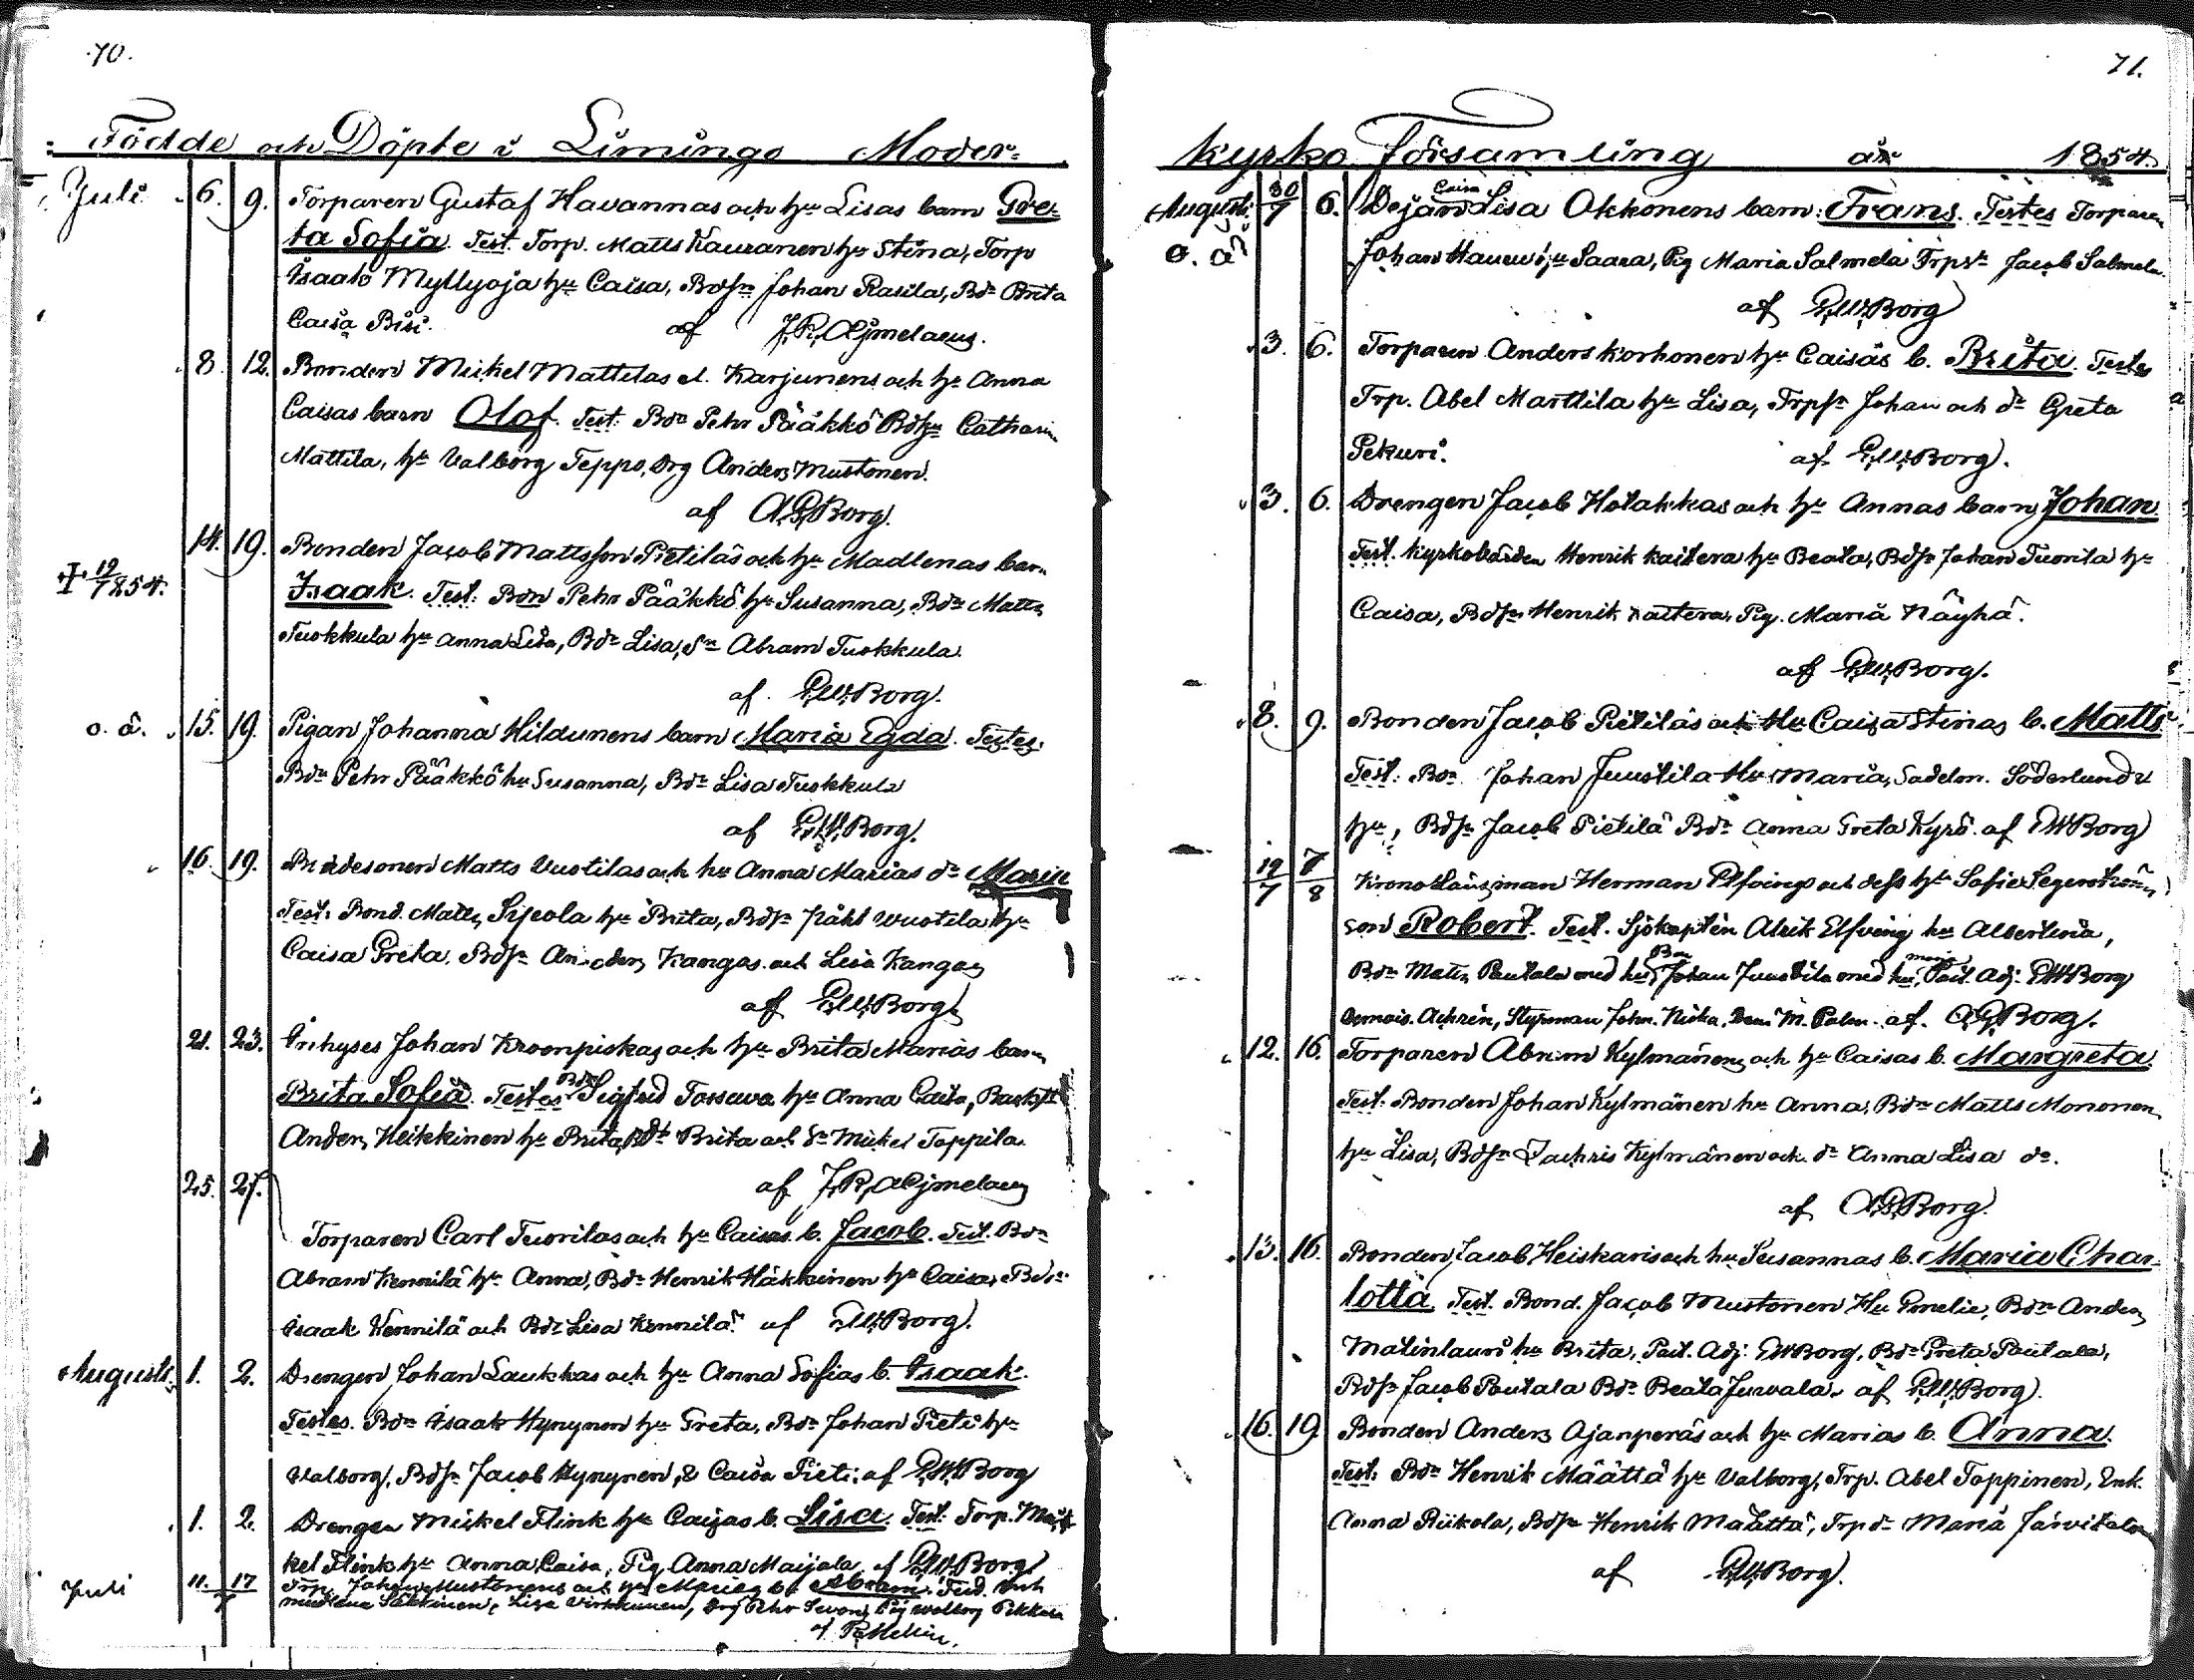 70.
Födde och Döpte i Limingo Moder-
Juli 6. 9. Torparen Gustaf Havannas och hu Lisas barn Gre-
ta Sofia. Test. Torp. Matts Kauranen hu Stina, Torp
Isaak Myllyoja hu Caisa, Bdsn Johan Rasila, Bdr Brita
Caisa Bisi. af J.R. Aejmelaeus.
8. 12. Bonden Mickel Mattilas el. Karjunens och hu Anna
Caisas barn Olof. Test. Bdn Pehr Pääkkö Bdhu Catharin
Mattila, hu Valborg Teppo, Drg Anders Mustonen.
af A.G. Borg.
14. 19. Bonden Jacob Mattsson Pietiläs och hu Madlenas barn
† 12/7 854. Isaak. Test. Bon Pehr Pääkkö hu Susanna, Bdn Matts
Tuokkula hu Anna Lisa, Bdr Lisa, Sn Abram Tuokkula.
af. E.W. Borg.
o. ä. 15. 19. Pigan Johanna Hildunens barn Maria Egda. Testes.
Bdn Pehr Pääkkö hu Susanna, Bdr Lisa Tuokkula
af E.W. Borg.
16. 19. Bondesonen Matts Vuotilas och hu Anna Marias dr Maria
Test. Bond. Matts Sipola hu Brita, Bdsn Påhl Wuotila hu
Caisa Greta, Bdsn Anders Kangas och Lisa Kangas
af E.W. Borg
21. 23. Inhyses Johan Kroonpiskas och hu Brita Marias barn
Brita Sofia. Testes Bdn Sigfrid Tossawa hu Anna Caisa,
Anders Heikkinen hu Brita, Bdr Brita och Sn Mickel Toppila.
25. 27. af J.R. Aejmelaeus
Torparen Carl Tuorilas och hu Caisas b. Jacob. Test. Bdn
Abram Kennilä hu Anna, Bdn Henrik Häkkinen hu Caisa, Bdsn
Isaak Kennilä och Bdr Lisa Kennilä. af E.W. Borg.
Augusti. 1. 2. Drengen Johan Laukkas och hu Anna Sofias b. Isaak.
Testes. Bdn Isaak Hynynen hu Greta, Bdn Johan Pieti hu
Valborg, Bdsn Jacob Hynynen, & Caisa Pieti. af E.W. Borg
1. 2. Drengen Mickel Flink hu Caisas b. Lisa. Test. Torp. Mic-
kel Flink hu Anna Caisa, Pig. Anna Maijala af E.W. Borg
Juli 11. 17 / 7 Trp. Johan Mustonens och hu Marias b. Abram. Test. Enk
Madlena Säkkinen, Lisa Virkkunen, Drg Pehr Sevon, Pig Walborg Pikkara
af P. Hellin.
71.
kyrko Församling år 1854.
Augusti 30/7 6. Dejan Caisa Lisa Okkonens barn: Frans. Testes Torparen
o. ä. Johan Hauru hu Saara, Pig Maria Salmela Trpsn Jacob Salmela.
af E.W. Borg
3. 6. Torparen Anders Korhonen hu Caisas b. Brita. Testes
Trp. Abel Marttila hu Lisa, Trpsn Johan och dr Greta
Pekuri. af E.W. Borg.
3. 6. Drengen Jacob Holakkas och hu Annas barn Johan
Test. Kyrkovärden Henrik Kaitera hu Beata, Bdsn Johan Tuorila hu
Caisa, Bdsn Henrik Kaitera, Pig. Maria Näyhä.
af E.W. Borg.
8. 9. Bonden Jacob Pietiläs och Hu Caisa Stinas b. Matts
Test. Bon. Johan Juustila Hu Maria, Sadelm. Söderlund &
hu, Bdsn Jacob Pietilä Bdr Anna Greta Kyrö. af E.W. Borg
19/7 7/8 Krono Länsman Herman Elfvings och dess hu Sofie Segerstråles
son Robert. Test. Sjökaptén Alrik Elfving hu Albertina,
Bdn Matts Pautala med hu, Bon Johan Juustila med hu Maria, Past. Adj. E.W. Borg
Demois. Achrén, Styrman John. Niska, Dem M. Palm. af. A.G. Borg.
12. 16. Torparen Abram Kylmänens och hu Caisas b. Margreta.
Test. Bonden Johan Kylmänen hu Anna, Bdn Matts Mononen
hu Lisa, Bdsn Zachris Kylmänen och dr Anna Lisa do.
af A.G. Borg.
13. 16. Bonden Jacob Heiskaris och hu Susannas b. Maria Char-
lotta Test. Bond. Jacob Mustonen Hu Emelie, Bdn Anders
Matinlauri hu Brita, Past. Adj. E.W. Borg, Bdr Greta Pautala,
Bdsn Jacob Pautala Bdr Beata Jurvala. af E.W. Borg.
16. 19. Bonden Anders Ajanperäs och hu Marias b. Anna.
Test. Bdn Henrik Määttä hu Valborg, Trp. Abel Toppinen, Enk.
Anna Riikola, Bdsn Henrik Määttä, Trp dr Maria Järvitalo
af E.W. Borg.